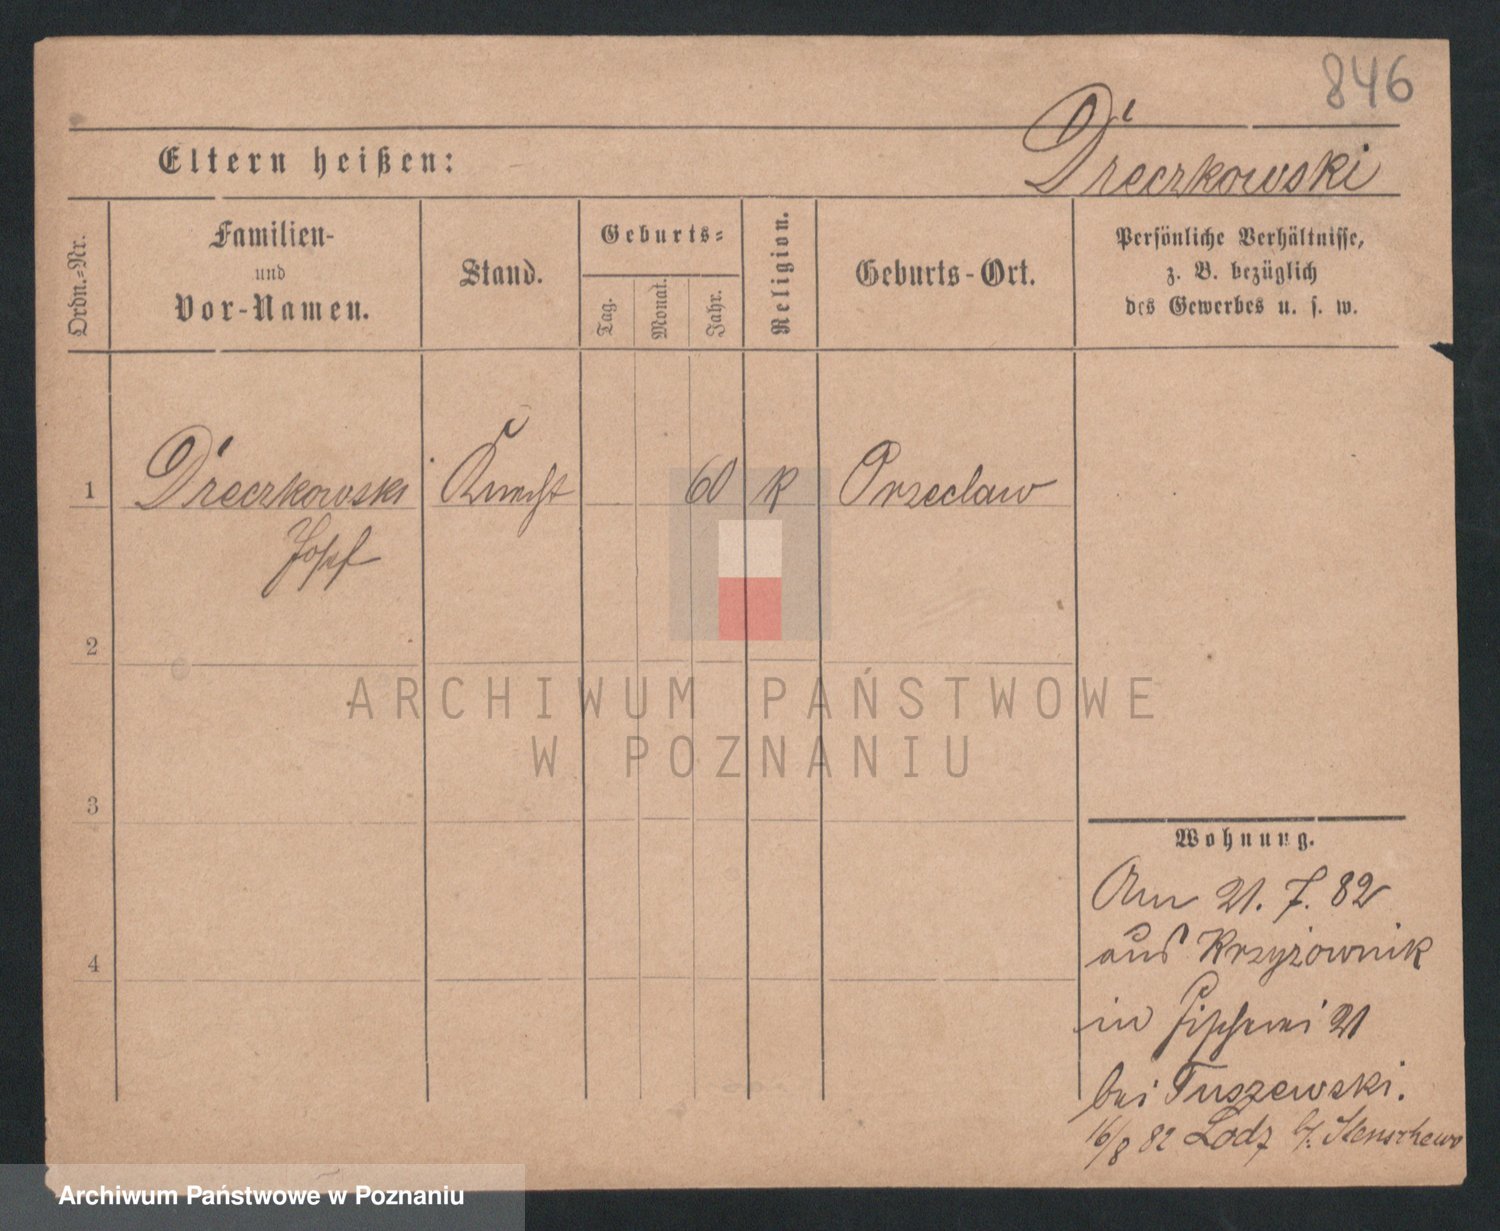 846
Dreczkowski
Eltern heißen:
Ordn.=Nr.
Familien-
und
Vor-Namen.
Stand.
Geburts=
Tag.
Monat.
Jahr.
Religion.
Geburts-Ort.
Persönliche Verhältnisse,
z. B. bezüglich
des Gewerbes u. s. w.
1 Dreczkowski Knecht 60 k Przeclaw
Josef
2
3
4
Wohnung.
Am 21. 7. 82
aus Krzyżownik
in Fischerei 21
bei Tuszewski.
16/8 82 Lodz b/. Stenschewo
ARCHIWUM PAŃSTWOWE
W POZNANIU
Archiwum Państwowe w Poznaniu